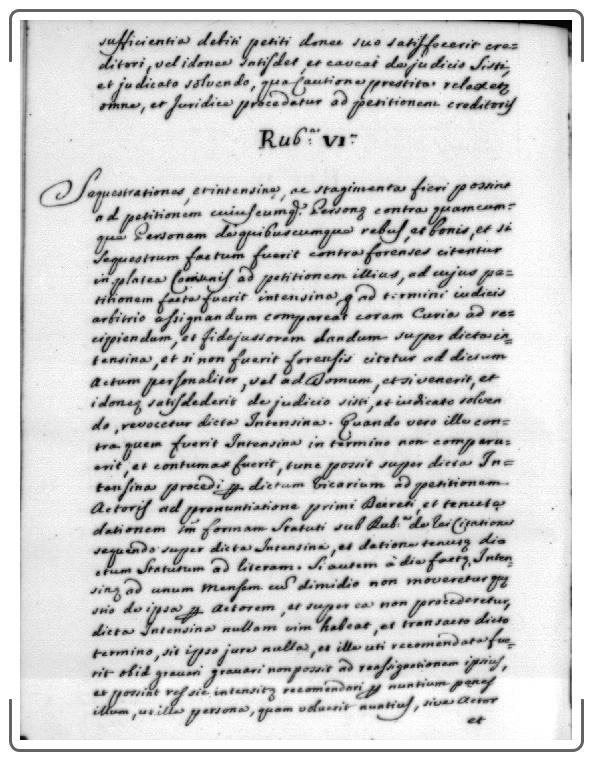 sufficientia debiti petiti donec suo satisfecerit cre=
ditori, vel idonee satisdet, et caveat de judicio sisti,
et judicato solvendo, qua Cautione prestita relaxetꝫ
omne, et Juridice procedatur ad petitionem creditoris
Rub.ᵃ VI.ᵃ
Sequestrationes, et intensinę, ac stagimenta fieri possint
ad petitionem cuiuscumqꝫ Personę contra quamcum-
que Personam de quibuscumque rebus, et bonis, et si
sequestrum factum fuerit contra forenses citentur
in platea Comunis ad petitionem illius, ad cujus pe=
titionem facta fuerit intensina q̄ ad termini iudicis
arbitrio assignandum compareat coram Curia ad re-
cipiendum, et fidejussorem dandum super dicta in-
tensina, et si non fuerit forensis citetur ad dictum
Actum personaliter, vel ad Domum, et si venerit, et
idoneę satisdederit de judicio sisti, et iudicato solven
do, revocetur dicta Intensina. Quando vero ille con-
tra quem fuerit Intensina in termino non comparu-
erit, et contumax fuerit, tunc possit super dicta In=
tensina procedi ꝑ dictum Vicarium ad petitionem
Actoris ad pronuntiatione primi Decreti, et tenutę
dationem in formam Statuti sub Rub.ᵃ de Citatione
sequendo super dicta Intensina, et datione tenutę di-
ctum Statutum ad literam. Si autem à die factę Inten-
sinę ad unum Mensem cū dimidio non moveretur quę
stio de ipsa ꝑ Actorem, et super ea non procederetur,
dicta Intensina nullam vim habeat, et transacto dicto
termino, sit ipso jure nulla, et ille uti recomendata fue-
rit obid gravari gravari non possit ad reassignationem ipsius,
et possint res sic intensitę recomendari ꝑ nuntium penes
illum, ut illa persona, quam voluerit nuntius, sive Actor
et